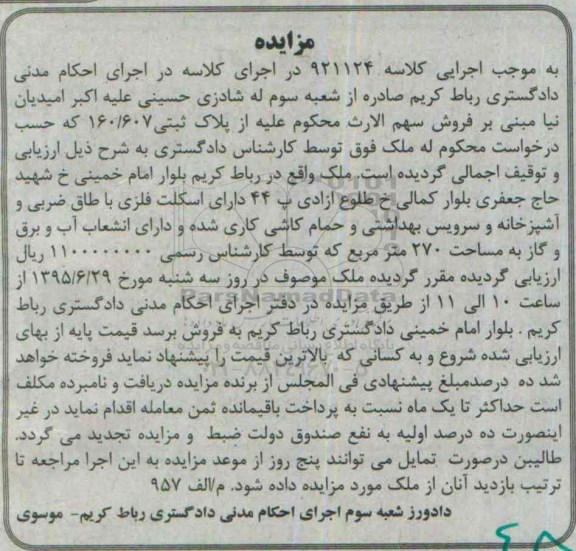 مزایده
به موجب اجرایی کلاسه ۹۲۱۱۲۴ در اجرای کلاسه در اجرای احکام مدنی
دادگستری رباط کریم صادره از شعبه سوم له شادزی حسینی علیه اکبر امیدیان
نیا مبنی بر فروش سهم الارث محکوم علیه از پلاک ثبتی۱۶۰/۶۰۷ که حسب
درخواست محکوم له ملک فوق توسط کارشناس دادگستری به شرح ذیل ارزیابی
و توقیف اجمالی گردیده است. ملک واقع در رباط کریم بلوار امام خمینی خ شهید
حاج جعفری بلوار کمالی خ طلوع ازادی پ ۴۴ دارای اسکلت فلزی با طاق ضربی و
آشپزخانه و سرویس بهداشتی و حمام کاشی کاری شده و دارای انشعاب آب و برق
و گاز به مساحت ۲۷۰ متر مربع که توسط کارشناس رسمی ۱۱۰۰۰۰۰۰۰۰۰ ریال
ارزیابی گردیده مقرر گردیده ملک موصوف در روز سه شنبه مورخ ۱۳۹۵/۶/۲۹ از
ساعت ۱۰ الی ۱۱ از طریق مزایده در دفتر اجرای احکام مدنی دادگستری رباط
کریم . بلوار امام خمینی دادگستری رباط کریم به فروش برسد قیمت پایه از بهای
ارزیابی شده شروع و به کسانی که بالاترین قیمت را پیشنهاد نماید فروخته خواهد
شد ده درصدمبلغ پیشنهادی فی المجلس از برنده مزایده دریافت و نامبرده مکلف
است حداکثر تا یک ماه نسبت به پرداخت باقیمانده ثمن معامله اقدام نماید در غیر
اینصورت ده درصد اولیه به نفع صندوق دولت ضبط و مزایده تجدید می گردد.
طالبین درصورت تمایل می توانند پنج روز از موعد مزایده به این اجرا مراجعه تا
ترتیب بازدید آنان از ملک مورد مزایده داده شود. م/الف ۹۵۷
دادورز شعبه سوم اجرای احکام مدنی دادگستری رباط کریم- موسوی
ParsNamadData